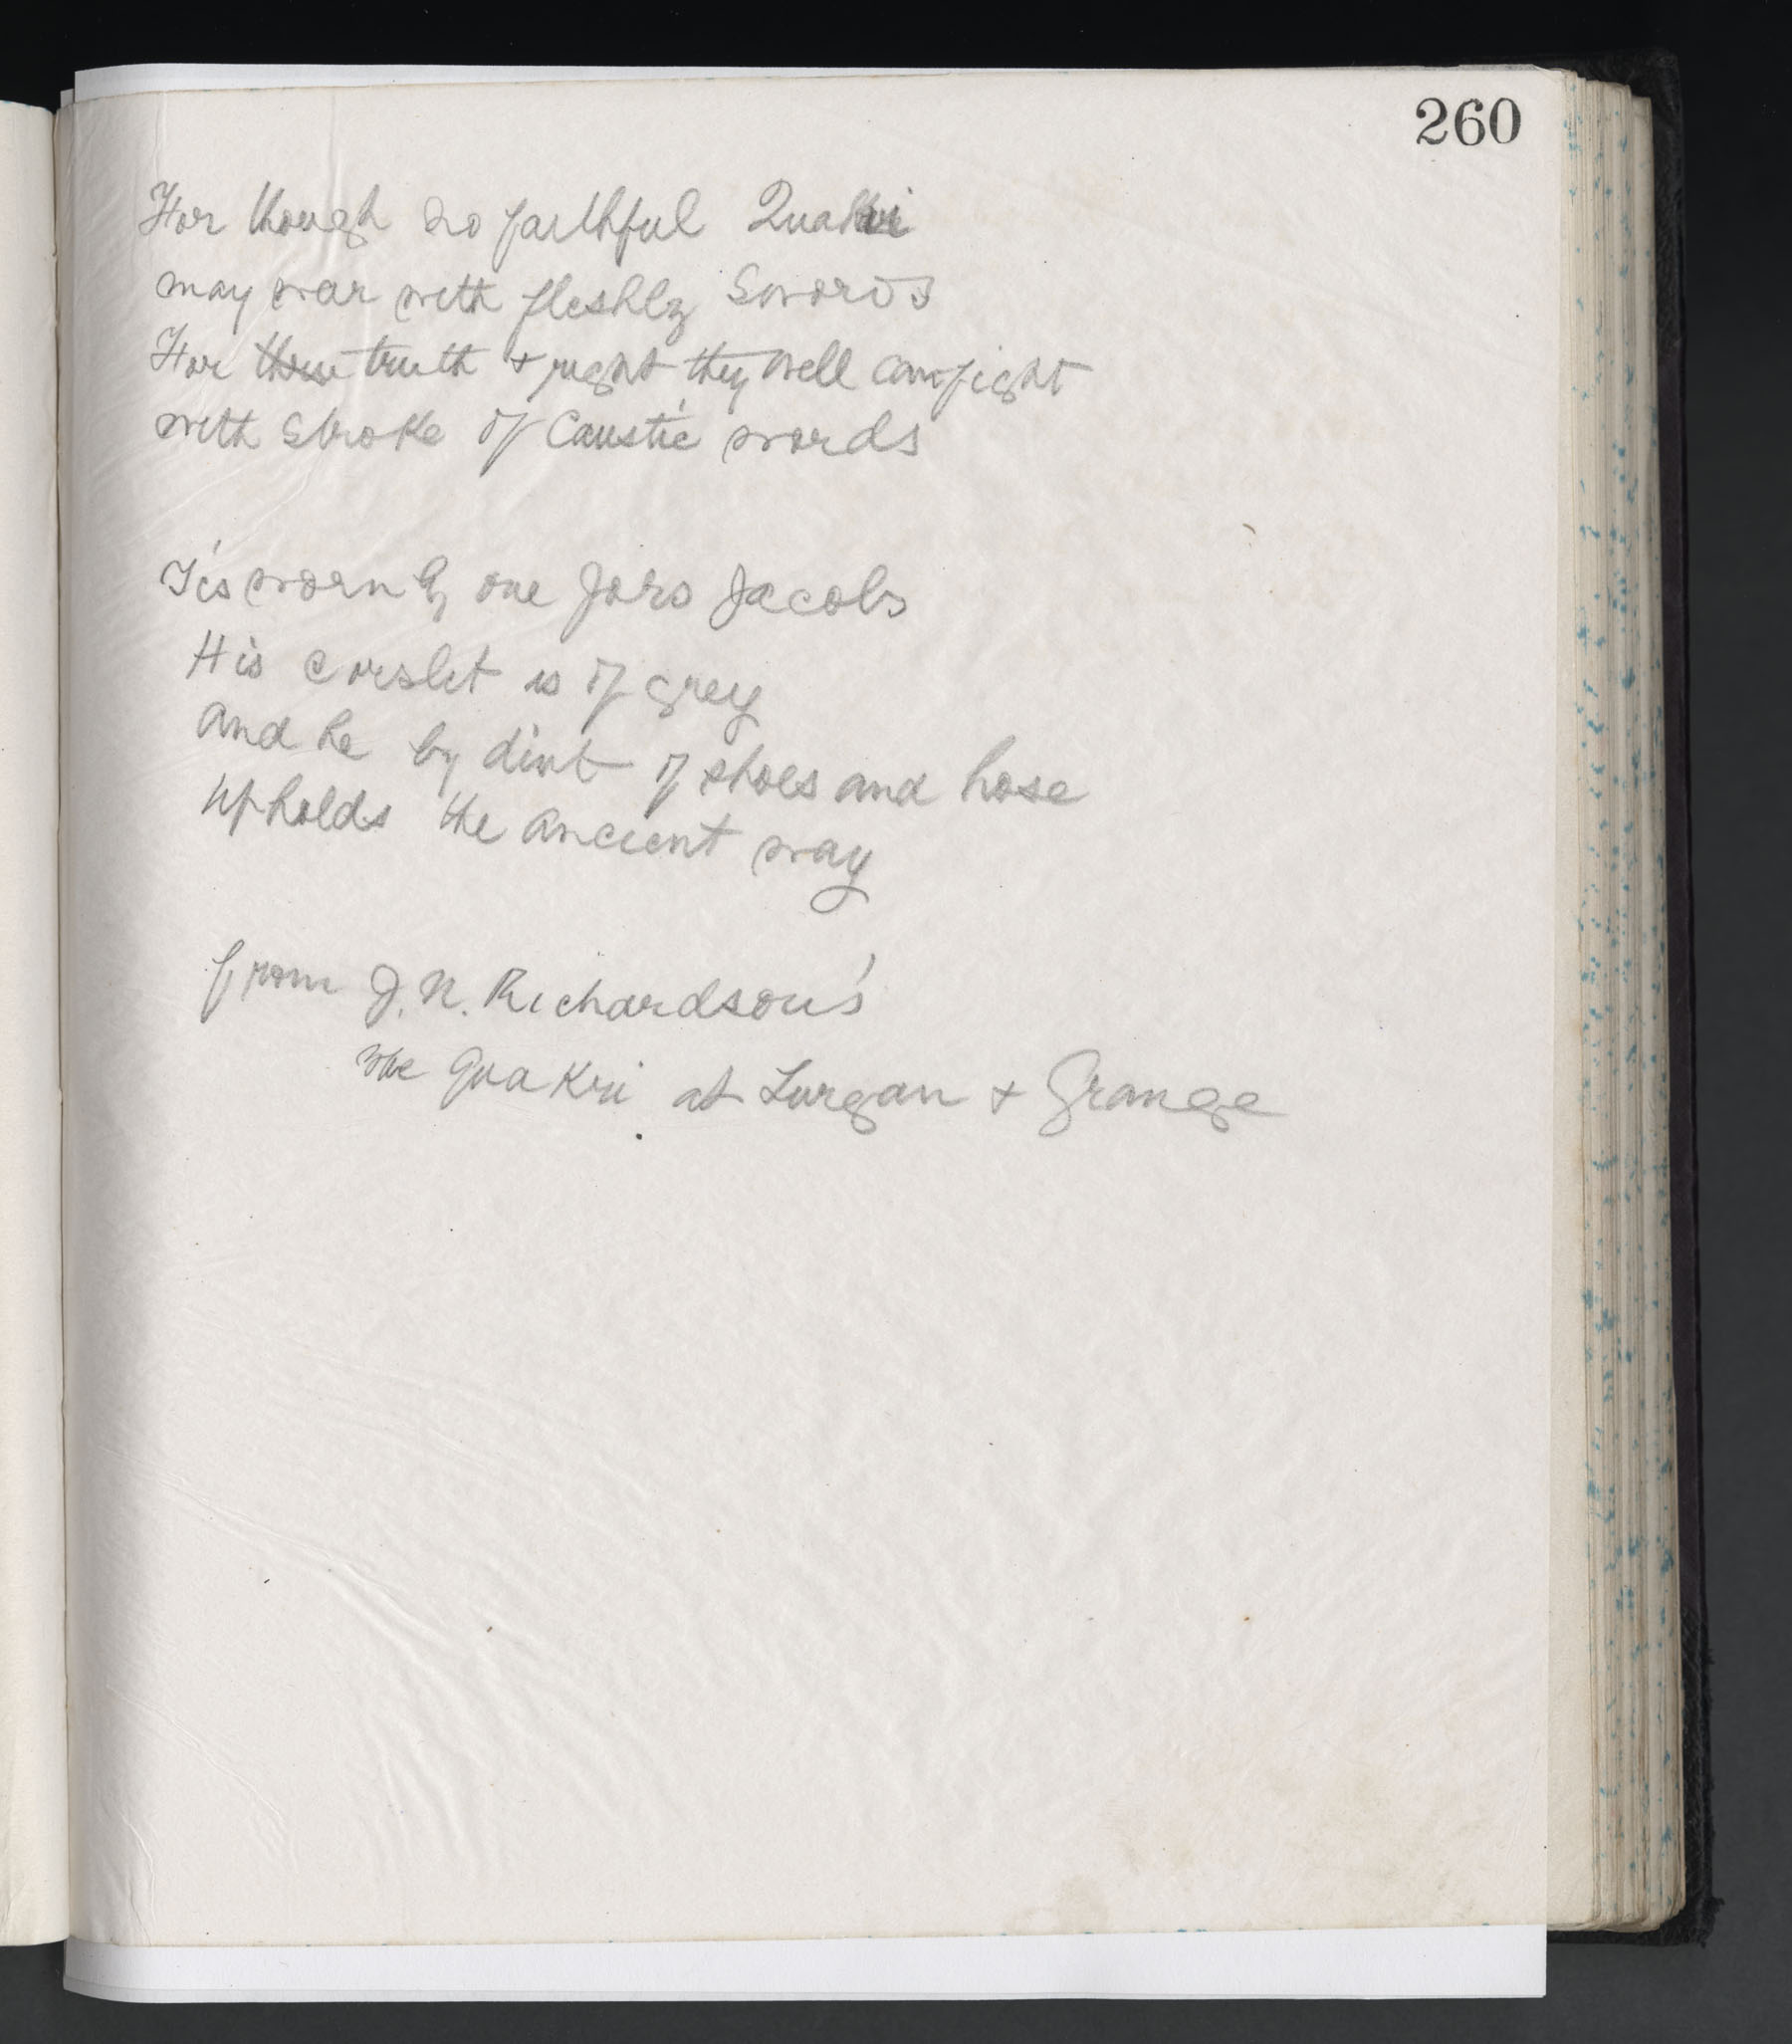 260
For though no faithful Quakri
may war with fleshly Swords
For these truth + right they well can fight
with stroke of Caustic words
T'is worn by one Jors Jacobs
His corslet is of grey
and he by dint of shoes and hose
upholds the ancient way
from J. N. Richardson's
The Quakri at Lurgan + Grange